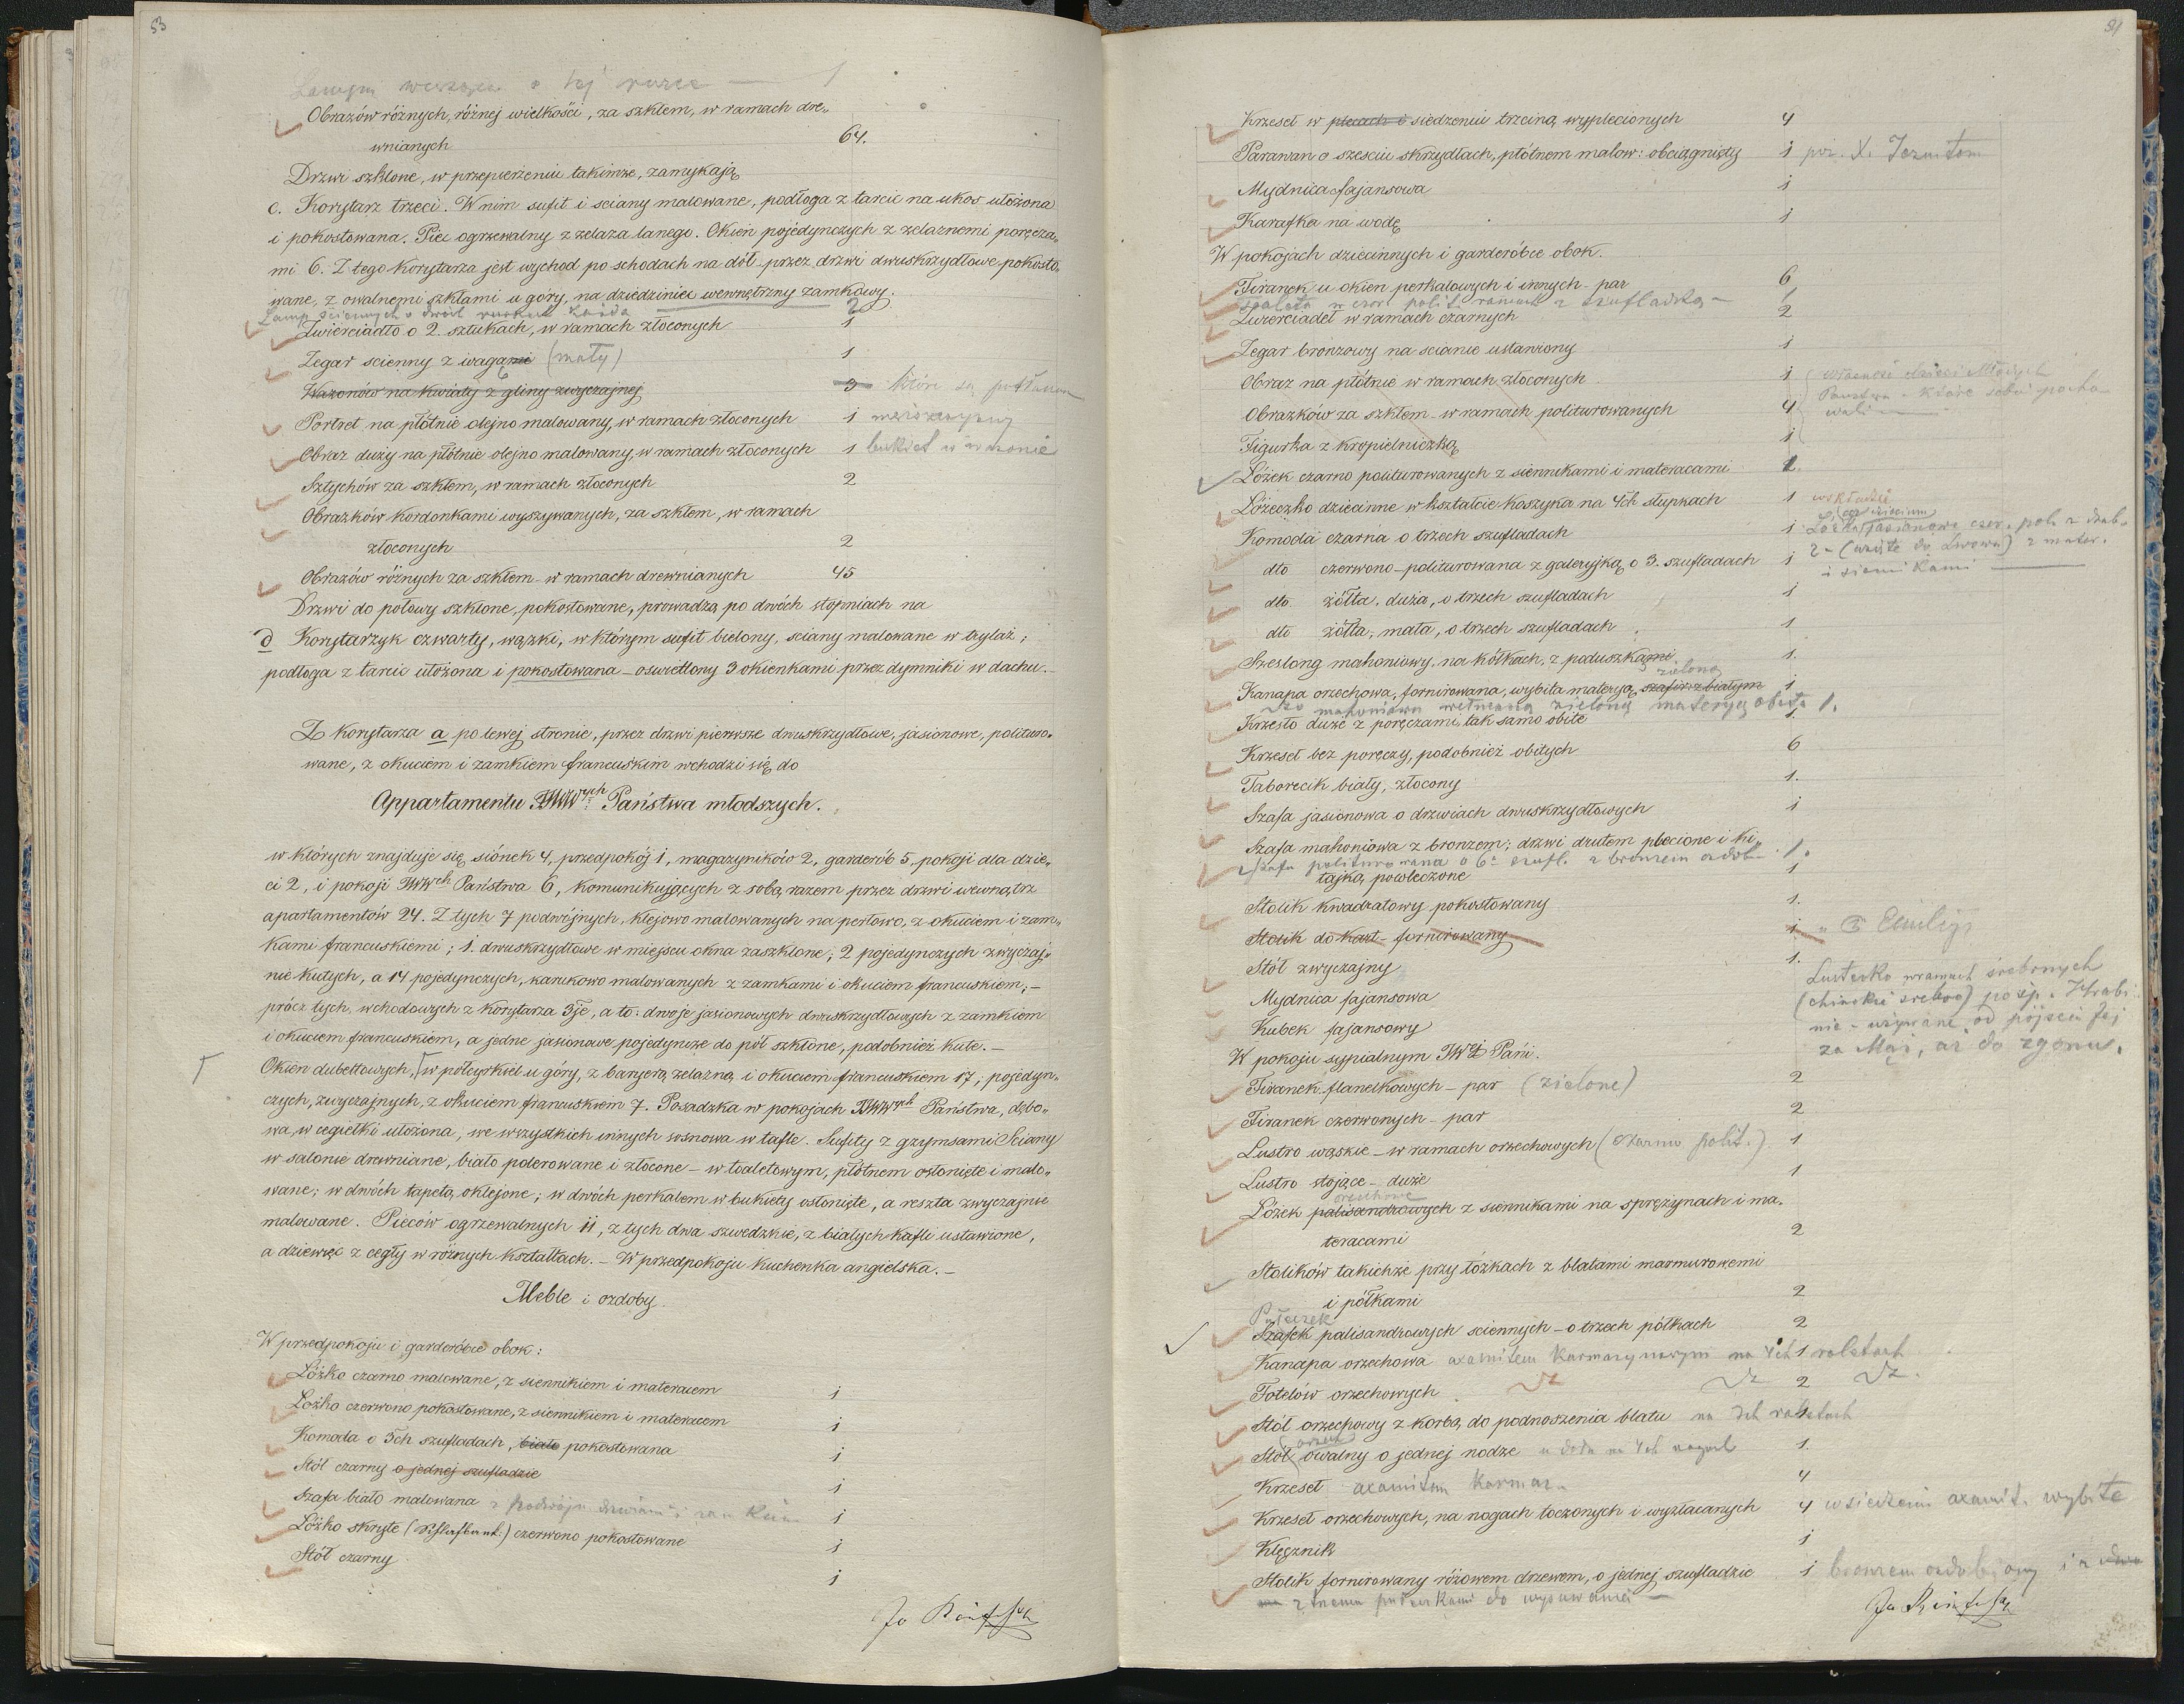 53
Lamp wisząca o tej rurce — 1
Obrazów różnych, różnej wielkości, za szkłem, w ramach dre„
wnianych 64.
Drzwi szklone, w przepierzeniu takimże, zamykają
c. Korytarz trzeci. W nim sufit i sciany malowane, podłoga z tarcic na ukos ułożona
i pokostowana. Piec ogrzewalny z żelaza lanego. Okien pojedynczych z żelaznemi poręcza„
mi 6. Z tego korytarza jest wychod po schodach na dół przez drzwi dwuskrzydłowe, pokosto„
wane, z owalnemi szkłami u góry, na dziedziniec wewnętrzny zamkowy.
Lamp sciennych o dwóch rurkach każda 2
Zwierciadło o 2. sztukach, w ramach złoconych 1
Zegar scienny z wagami (mały) 1
Wazonów na kwiaty z gliny zwyczajnej 3 które są potłuczone
Portret na płótnie olejno malowany, w ramach złoconych 1
Obraz duży na płótnie olejno malowany, w ramach złoconych 1 bukiet w wazonie
Sztychów za szkłem, w ramach złoconych 2
Obrazków kordonkami wyszywanych, za szkłem, w ramach
złoconych 2
Obrazów różnych za szkłem w ramach drewnianych 45
Drzwi do połowy szklone, pokostowane, prowadzą po dwóch stopniach na
d Korytarzyk czwarty, wązki, w którym sufit bielony, sciany malowane w trylaż,
podłoga z tarcic ułożona i pokostowana – oswetlony 3 okienkami przez dymniki w dachu. –
Z korytarza a po lewej stronie, przez drzwi pierwsze dwuskrzydłowe, jasionowe, polituro„
wane, z okuciem i zamkiem francuskim wchodzi się do
Appartamentu JWWych Państwa młodszych.
w których znajduje się siónek 4, przedpokój 1, magazyników 2, garderób 5, pokoji dla dzie„
ci 2, i pokoji JWWch Państwa 6, komunikujących z sobą razem przez drzwi wewnątrz
apartamentów 24. Z tych 7 podwójnych, klejowo malowanych na perłowo, z okuciem i zam„
kami francuskiemi; 1. dwuskrzydłowe w miejscu okna zaszklone; 2 pojedynczych zwyczaj„
nie kutych, a 14 pojedynczych, karukowo malowanych z zamkami i okuciem francuskiem; –
prócz tych, wchodowych z korytarza 3je, a to: dwoje jasionowych dwuskrzydłowych z zamkiem
i okuciem francuskiem, a jedne jasionowe pojedyncze do pół szklone, podobnież kute. –
Okien dubeltowych, w półcyrkiel u góry, z baryerą żelazną i okuciem francuskiem 17; pojedyn„
czych, zwyczajnych, z okuciem francuskiem 7. Posadzka w pokojach JWWych Państwa, dębo„
wa, w cegiełki ułożona, we wszystkich innych sosnowa w tafle. Sufity z gzymsami. Sciany
w salonie drewniane, biało polerowane i złocone – w toaletowym, płótnem osłonięte i malo„
wane; w dwóch tapetą oklejone; w dwóch perkalem w bukiety osłonięte, a reszta zwyczajnie
malowane. Pieców ogrzewalnych 11, z tych dwa szwedzkie, z białych kafli ustawione,
a dziewięć z cegły w różnych kształtach. – W przedpokoju kuchenka angielska. –
Meble i ozdoby.
W przedpokoju i garderóbie obok:
Lóżko czarno malowane, z siennikiem i materacem 1
Lóżko czerwono pokostowane, z siennikiem i materacem 1
Komoda o 3ch szufladach, biało pokostowana 1
Stół czarny o jednej szufladzie 1
Szafa biało malowana 1
Lóżko skryte (Schlafbank) czerwono pokostowane 1
Stół czarny 1
Krzeseł w plecach i siedzeniu trzciną wyplecionych 4
Parawan o szesciu skrzydłach, płótnem malow: obciągnięty 1 poż. X. Jezuitom
Mydnica fajansowa 1
Karafka na wodę 1
W pokojach dziecinnych i garderóbce obok.
Firanek u okien perkalowych i innych – par 6
toaleta w czar. polit. ramach z szufladką – 1
Zwierciadeł w ramach czarnych 2
Zegar bronzowy na scianie ustawiony 1
Obraz na płótnie w ramach złoconych 1 własność dzieci Młodych
Obrazków za szkłem – w ramach politurowanych 4 Państwa – które sobie pocho-
wali
Figurka z kropielniczką 1
Lóżek czarno politurowanych z siennikami i materacami 2.
Lóżeczko dziecinne w kształcie koszyka na 4ch słupkach 1
Komoda czarna o trzech szufladach 1
dto czerwono – politurowana z galeryjką, o 3. szufladach 1 2 – (wzięte do Lwowa) z mater.
i siennikami
dto. żółta, duża, o trzech szufladach 1
dto żółta, mała, o trzech szufladach 1
Szeslong mahoniowy, na kółkach, z poduszkami 1.
zieloną
Kanapa orzechowa, fornirowana, wybita materyą szafir: z białym 1
dto mahoniowa wełnianą zieloną materyą obita 1.
Krzesło duże z poręczami, tak samo obite 1.
Krzeseł bez poręczy, podobnież obitych 6
Taborecik biały, złocony 1.
Szafa jasionowa o drzwiach dwuskrzydłowych 1
Szafa mahoniowa z bronzem; drzwi drutem plecione i ki„
Szafa politurowana o 6. szufl. z bronzem ozdob. 1.
tajką powleczone 1
Stolik kwadratowy pokostowany 1.
Stolik do kart – fornirowany 1 „ Emilij
Stół zwyczajny 1.
Mydnica fajansowa
Kubek fajansowy
Lusterko w ramach srebrnych
(chińskie srebro) po śp. Hrabi-
nie – używane od pójścia Jej
za Mąż, aż do zgonu.
W pokoju sypialnym JW Pani.
Firanek flanelkowych – par (zielone) 2
Firanek czerwonych – par 2
Lustro wąskie – w ramach orzechowych (czarno polit.) 1
Lustro stojące – duże 1
orzechowe
Lóżek palisandrowych z siennikami na sprężynach i ma„
teracami 2
Stolików takichże przy łóżkach z blatami marmurowemi
i półkami 2
Półeczek
Szafek palisandrowych sciennych – o trzech półkach 2
Kanapa orzechowa axamitem karmazynowym na 4ch 1 roletach
Fotelów orzechowych 2
Stół orzechowy z korbą do podnoszenia blatu na 3ch roletach 1
orzech
Stół owalny o jednej nodze u dołu na 4ch nogach 1.
Krzeseł axamitem karmaz. 4
Krzeseł orzechowych, na nogach toczonych i wyzłacanych 4 w siedzeniu axamit. wybite
Klęcznik 1
Stolik fornirowany różowem drzewem, o jednej szufladzie 1 bronzem ozdobiony